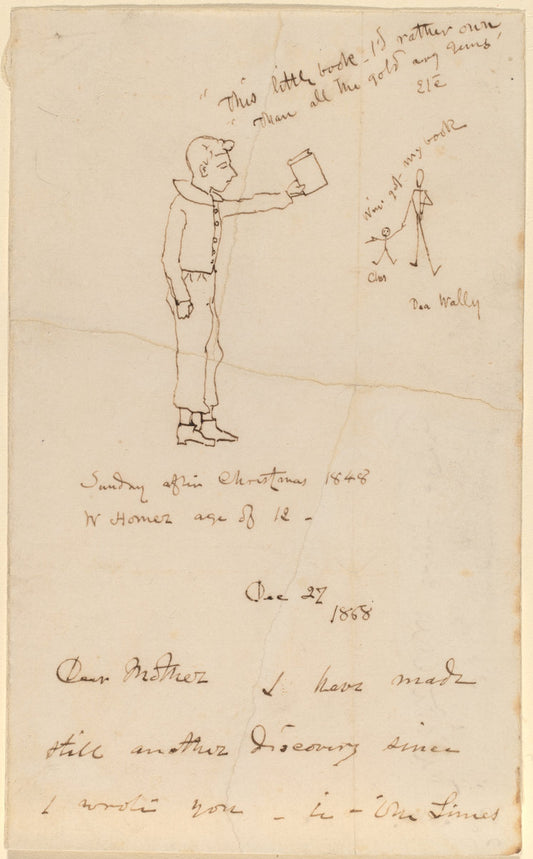 "This little book - I'd rather own
"than all the gold any gems"
Etc
my book
Chas
Wally
Sunday after Christmas 1848
W Homer age of 12 -
Dec 27
1868
Dear Mother I have made
still another discovery since
I wrote you - in - Times